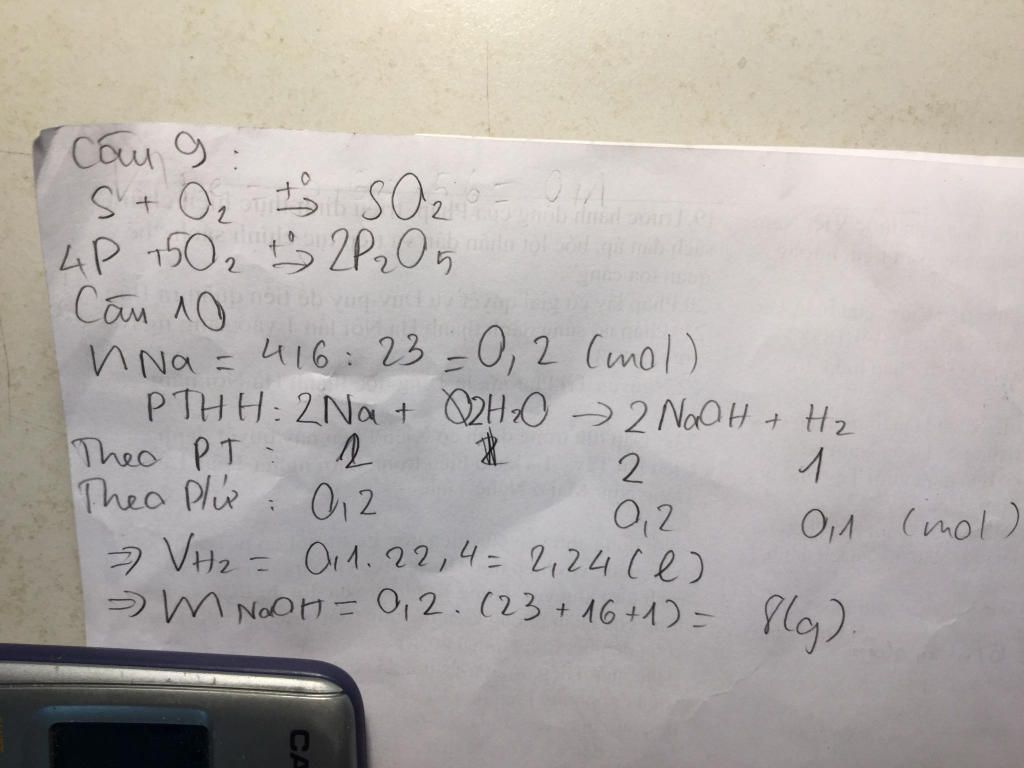 Câu 9:
S + O2 t° → SO2
4P + 5O2 t° → 2P2O5
Câu 10
nNa = 4,6 : 23 = 0,2 (mol)
PTHH: 2Na + 2H2O → 2NaOH + H2
Theo PT : 2 2 1
Theo P/ứ : 0,2 0,2 0,1 (mol)
⇒ VH2 = 0,1.22,4 = 2,24 (l)
⇒ mNaOH = 0,2.(23+16+1) = 8(g).
CA